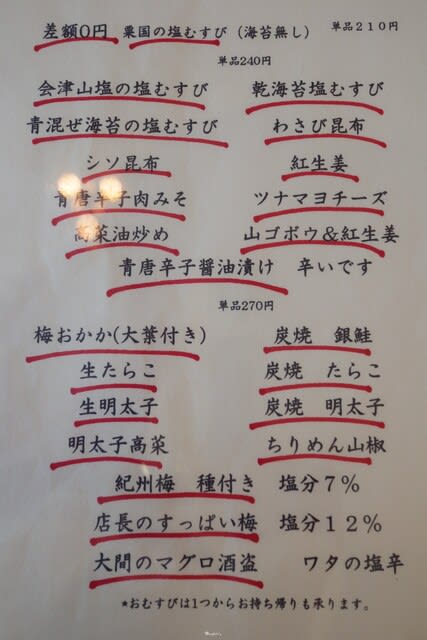 差額0円 粟国の塩むすび (海苔無し) 単品210円
単品240円
会津山塩の塩むすび 乾海苔塩むすび
青混ぜ海苔の塩むすび わさび昆布
シソ昆布 紅生姜
青唐辛子肉みそ ツナマヨチーズ
高菜油炒め 山ゴボウ&紅生姜
青唐辛子醤油漬け 辛いです
単品270円
梅おかか(大葉付き) 炭焼 銀鮭
生たらこ 炭焼 たらこ
生明太子 炭焼 明太子
明太子高菜 ちりめん山椒
紀州梅 種付き 塩分7%
店長のすっぱい梅 塩分12%
大間のマグロ酒盗 ワタの塩辛
*おむすびは1つからお持ち帰りも承ります。